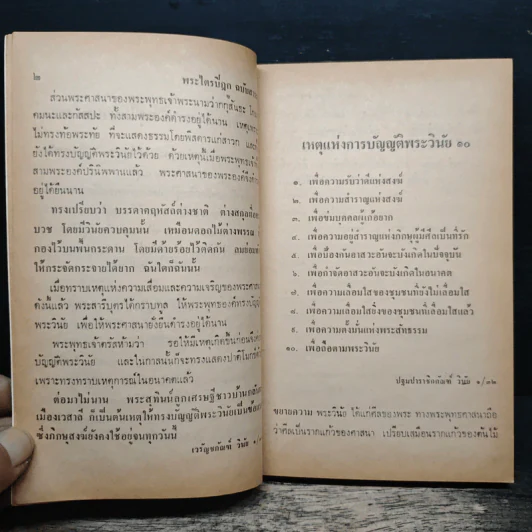 ๒
พระไตรปิฎก ฉบับ
ส่วนพระศาสนาของพระพุทธเจ้าพระนามว่ากกุสันธะ
คมนะและกัสสปะ ทั้งสามพระองค์ดำรงอยู่ได้นาน
ไม่ทรงท้อพระทัย ที่จะแสดงธรรมโดยพิสดารแก่สาวก และ
ยังได้ทรงบัญญัติพระวินัยไว้ด้วย ด้วยเหตุนี้เมื่อพระพุทธเจ้า
สามพระองค์ปรินิพพานแล้ว พระศาสนาของพระองค์จึงดำรง
อยู่ได้ยืนนาน
ทรงเปรียบว่า บรรดาคฤหัสถ์ต่างชาติ ต่างสกุลที่
บวช โดยมีวินัยควบคุมนั้น เหมือนดอกไม้ต่างพรรณ
กองไว้บนพื้นกระดาน โดยมีด้ายร้อยไว้ติดกัน ลมย่อม
ให้กระจัดกระจายได้ยาก ฉันใดก็ฉันนั้น
เมื่อทราบเหตุแห่งความเสื่อมและความเจริญของพระศาสนา
ดังนี้แล้ว พระสารีบุตรได้กราบทูล ให้พระพุทธองค์ทรงบัญญัติ
พระวินัย เพื่อให้พระศาสนายั่งยืนดำรงอยู่ได้นาน
พระพุทธเจ้าตรัสห้ามว่า รอให้มีเหตุเกิดขึ้นก่อนจึง
บัญญัติพระวินัย และในกาลนั้นก็จะทรงแสดงปาติโมกข์
เพราะทรงทราบเหตุการณ์ในอนาคตแล้ว
ต่อมาไม่นาน พระสุทินน์ลูกเศรษฐีชาวบ้านกลันทะ
เมืองเวสาลี ก็เป็นต้นเหตุให้ทรงบัญญัติพระวินัยเป็น
ซึ่งภิกษุสงฆ์ยังคงใช้อยู่จนทุกวันนี้
เวรัญชกัณฑ์ วินัย ๑/
เหตุแห่งการบัญญัติพระวินัย ๑๐
๑. เพื่อความรับว่าดีแห่งสงฆ์
๒. เพื่อความสำราญแห่งสงฆ์
๓. เพื่อข่มบุคคลผู้เก้อยาก
๔. เพื่อความอยู่สำราญแห่งภิกษุผู้มีศีลเป็นที่รัก
๕. เพื่อป้องกันอาสวะอันจะบังเกิดในปัจจุบัน
๖. เพื่อกำจัดอาสวะอันจะบังเกิดในอนาคต
๗. เพื่อความเลื่อมใส ของชุมชนที่ยังไม่เลื่อมใส
๘. เพื่อความเลื่อมใสยิ่ง ของชุมชนที่เลื่อมใสแล้ว
๙. เพื่อความตั้งมั่นแห่งพระสัทธรรม
๑๐. เพื่อถือตามพระวินัย
ปฐมปาราชิกกัณฑ์ วินัย ๑/๓๒
ขยายความ พระวินัย ได้แก่ศีลของพระ ทางพระพุทธศาสนาถือ
ว่าศีลเป็นรากแก้วของศาสนา เปรียบเสมือนรากแก้วของต้นไม้